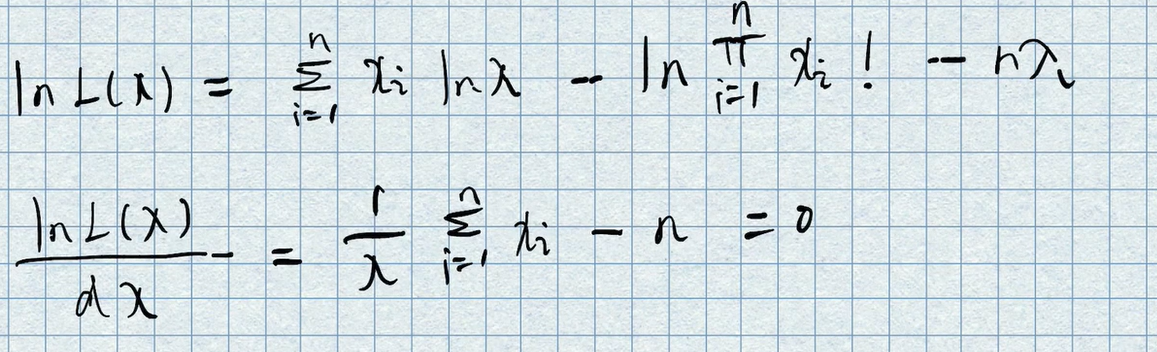 ln L(λ) = Σ_{i=1}^{n} x_i ln λ - ln Π_{i=1}^{n} x_i ! - nλ
ln L(λ) / dλ = 1/λ Σ_{i=1}^{n} x_i - n = 0